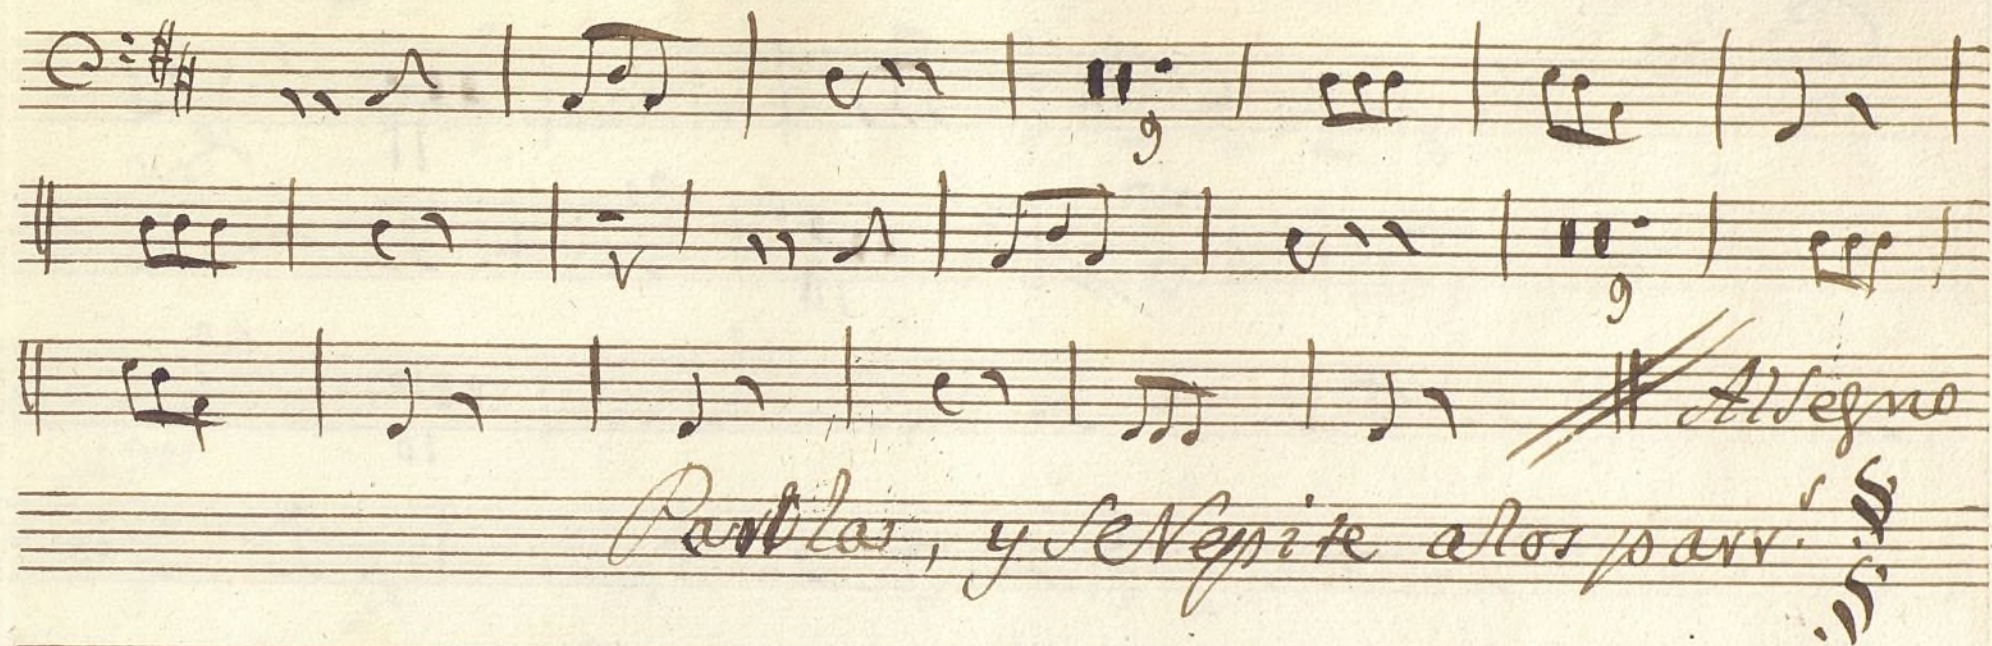 9
9
Al Segno
Parolas, y se Repite a los parr.s